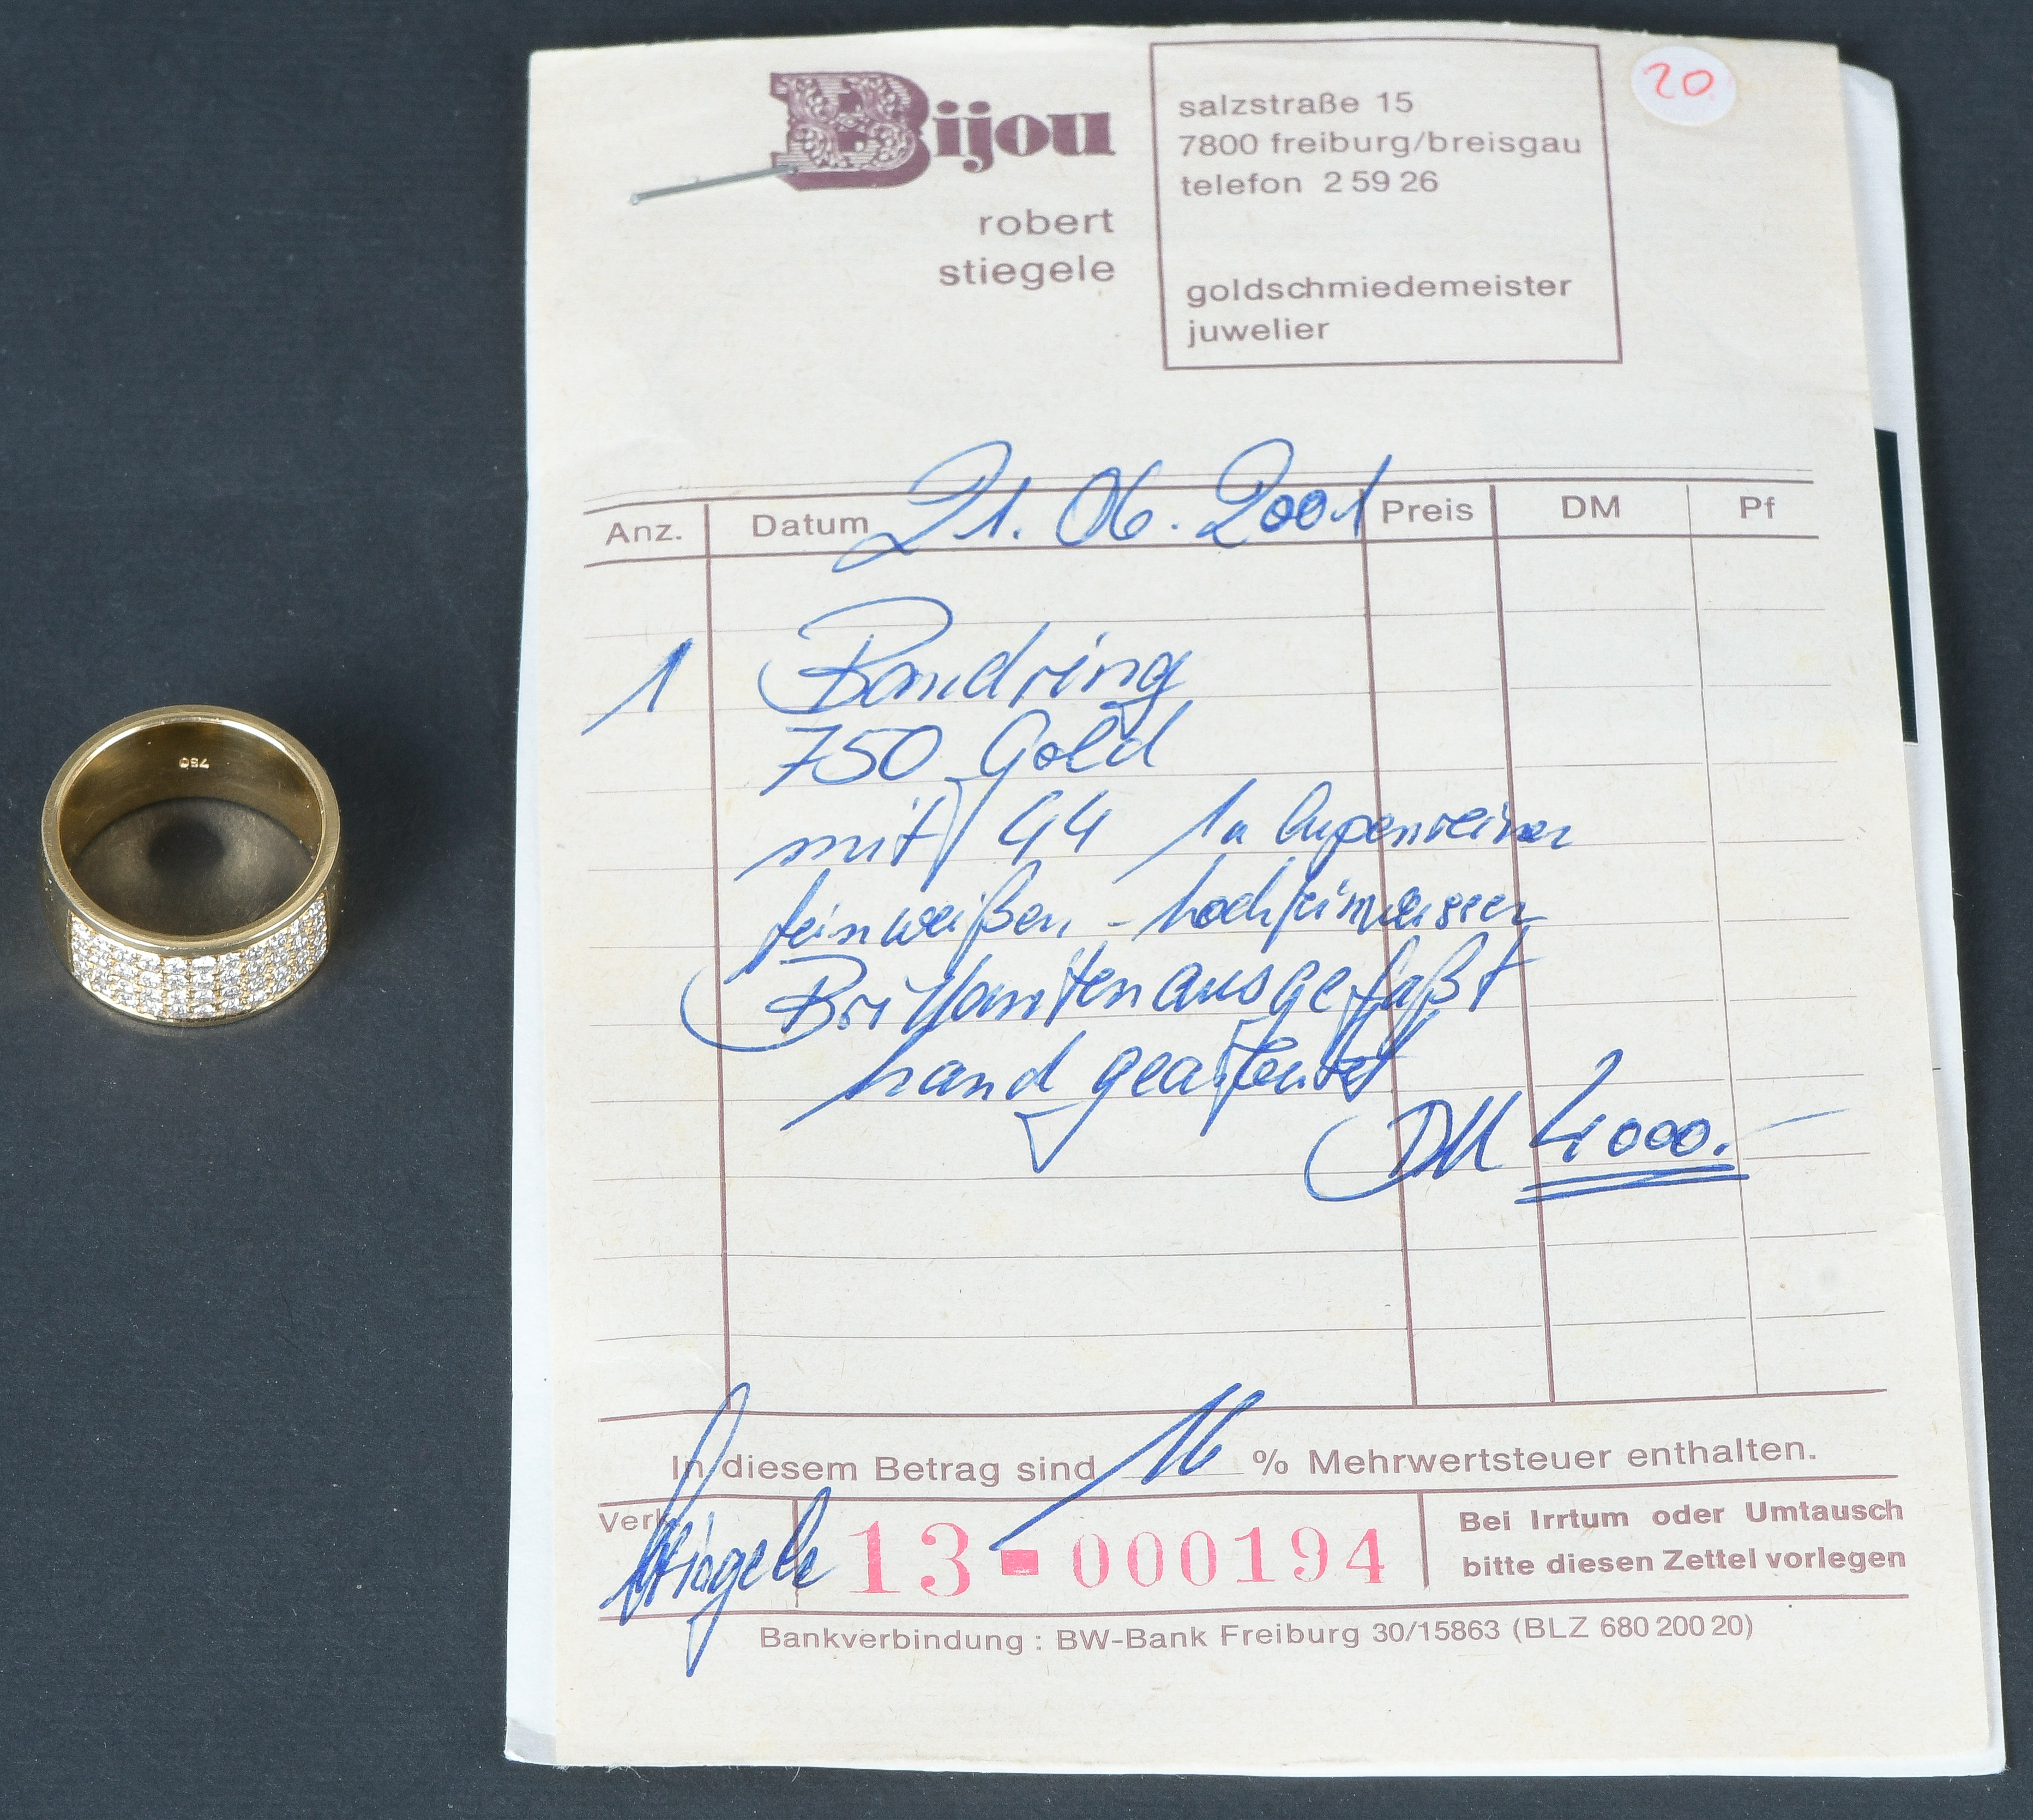 Bijou
robert
stiegele
salzstraße 15
7800 freiburg/breisgau
telefon 2 59 26
goldschmiedemeister
juwelier
20
Anz. Datum 21.06.2001 Preis DM Pf
1 Bandring
750 Gold
mit 44 1a lupenreinen
feinweißen - hochfeinweissen
Brillanten ausgefaßt
handgearbeitet
DM 4000.-
In diesem Betrag sind 16 % Mehrwertsteuer enthalten.
Verk. Stiegele 13-000194
Bei Irrtum oder Umtausch
bitte diesen Zettel vorlegen
Bankverbindung: BW-Bank Freiburg 30/15863 (BLZ 680 200 20)
750